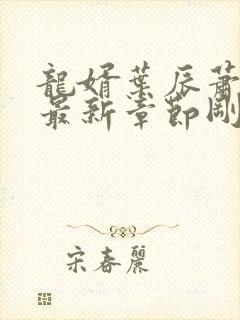 龍婿葉辰蕭
最新章節剛
宋春麗